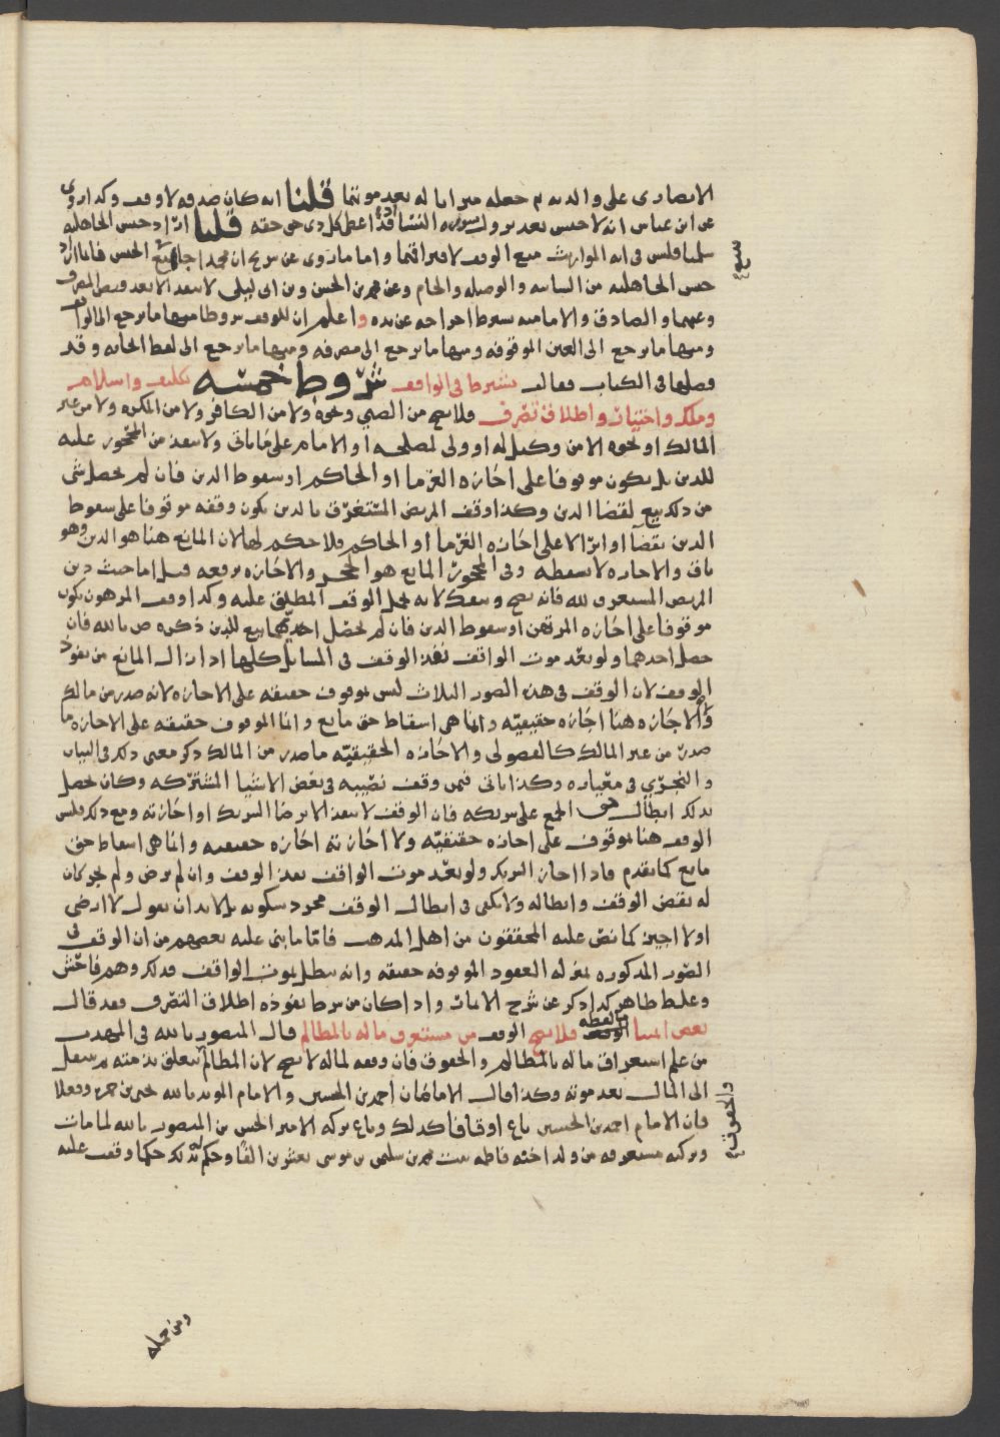 الانصاري على والديه ثم جعله ميراثا له بعد موتهما قلنا انه كان صدقه لا وقف وكذا روي
عن ابن عباس انه لا حبس بعد نزول سورة النساء اعطى كل ذي حق حقه قلنا اراد حبس الجاهليه
سلمنا فليس في ايه المواريث منع الوقف لافتراقهما واما ما روي عن شريح ان محمدا جاء ببيع الحبس فانما اراد
حبس الجاهليه من السائبه والوصيله والحام وعن محمد بن الحسن وبن ابي ليلى لا ينفذ الا بعد قبض المصرف
وعنهما والصادق والاماميه يشترط اخراجه عن يده واعلم ان للوقف شروطا منها ما يرجع الى الواقف
ومنها ما يرجع الى العين الموقوفه ومنها ما يرجع الى مصرفه ومنها ما يرجع الى لفظ ايجابه وقد
فصلها في الكتاب فقال يشترط في الواقف شروط خمسه تكليف واسلام
وملك واختيار واطلاق تصرف فلا يصح من الصبي ونحوه ولا من الكافر ولا من المكره ولا من غير
المالك او نحوه الا من وكيل له او ولي لمصلحه او الامام على ما ياتي ولا ينفذ من المحجور عليه
للدين بل يكون موقوفا على اجازه الغرما او الحاكم او سقوط الدين فان لم يحصل شي
من ذلك بيع لقضا الدين وكذا وقف المريض المستغرق بالدين يكون وقفه موقوفا على سقوط
الدين بقضآ او ابرا لا على اجازه الغرما او الحاكم فلا حكم لها لان المانع هنا هو الدين وهو
باق والاجازه لا تسقطه وفي المحجور المانع هو الحجر والاجازه ترفعه قيل اما حيث دين
المريض المستغرق لله فانه يصح وينفذ لانه لا محل الوقف المطلق عليه وكذا وقف المرهون يكون
موقوفا على اجازه المرتهن او سقوط الدين فان لم يحصل احديهما بيع للدين ذكره ص بالله فان
حصل احدهما ولو بعد موت الواقف نفذ الوقف في المسايل كلها اذا زال المانع من نفوذ
الوقف لان الوقف في هذه الصور الثلاث ليس بموقوف حقيقه على الاجازه لانه صدر من مالك
ولا الاجازه هنا اجازه حقيقيه وانما هي اسقاط حق مانع وانما الموقوف حقيقه على الاجازه ما
صدر من غير المالك كالفضولي والاجازه الحقيقيه ما صدر من المالك ذكر معنى ذلك في البيان
والنجري في معياره وكذا ياتي فيمن وقف نصيبه في بعض الاشيا المشتركه وكان يحصل
بذلك ابطال حق الجمع على شريكه فان الوقف لا ينفذ الا برضا الشريك او اجازته ومع ذلك فليس
الوقف هنا موقوف على اجازه حقيقيه ولا اجازته اجازه حقيقيه وانما هي اسقاط حق
مانع كما تقدم فاذا اجاز الشريك ولو بعد موت الواقف نفذ الوقف وان لم يرض ولم يجز كان
له نقض الوقف وابطاله ولا يكفي في ابطال الوقف مجرد سكوته بل لا بد ان يقول لا ارضى
او لا اجيز كما نص عليه المحققون من اهل المذهب فاما ما بنى عليه بعضهم من ان الوقف في
الصور المذكوره بمنزله العقود الموقوفه حقيقه وانه يبطل بموت الواقف فذلك وهم فاحش
وغلط ظاهر كذا ذكر عن شرح الاثمار واذا كان من شرطه نفوذه اطلاق التصرف فقد قال
بعض ايمتنا فلا يصح الوقف من مستغرق ماله بالمظالم قال المنصور بالله في المهذب
من علم استغراق ماله بالمظالم والحقوق فان وقفه لماله لا يصح لان المظالم تتعلق بذمته ثم تنتقل
الى المال بعد موته وكذا قال الامامان احمد بن الحسين والامام المويد بالله يحيى بن حمزه وفعلا
فان الامام احمد بن الحسين باع اوقافا كذلك وباع تركه الامير الحسن بن المنصور بالله لما مات
وتركته مستغرقه من ولد اخته فاطمه بنت محمد بن سليمن بن موسى بعشرين الفا وحكم له بذلك حكما وقعت عليه
بيع
والحقوق
ومن جمله